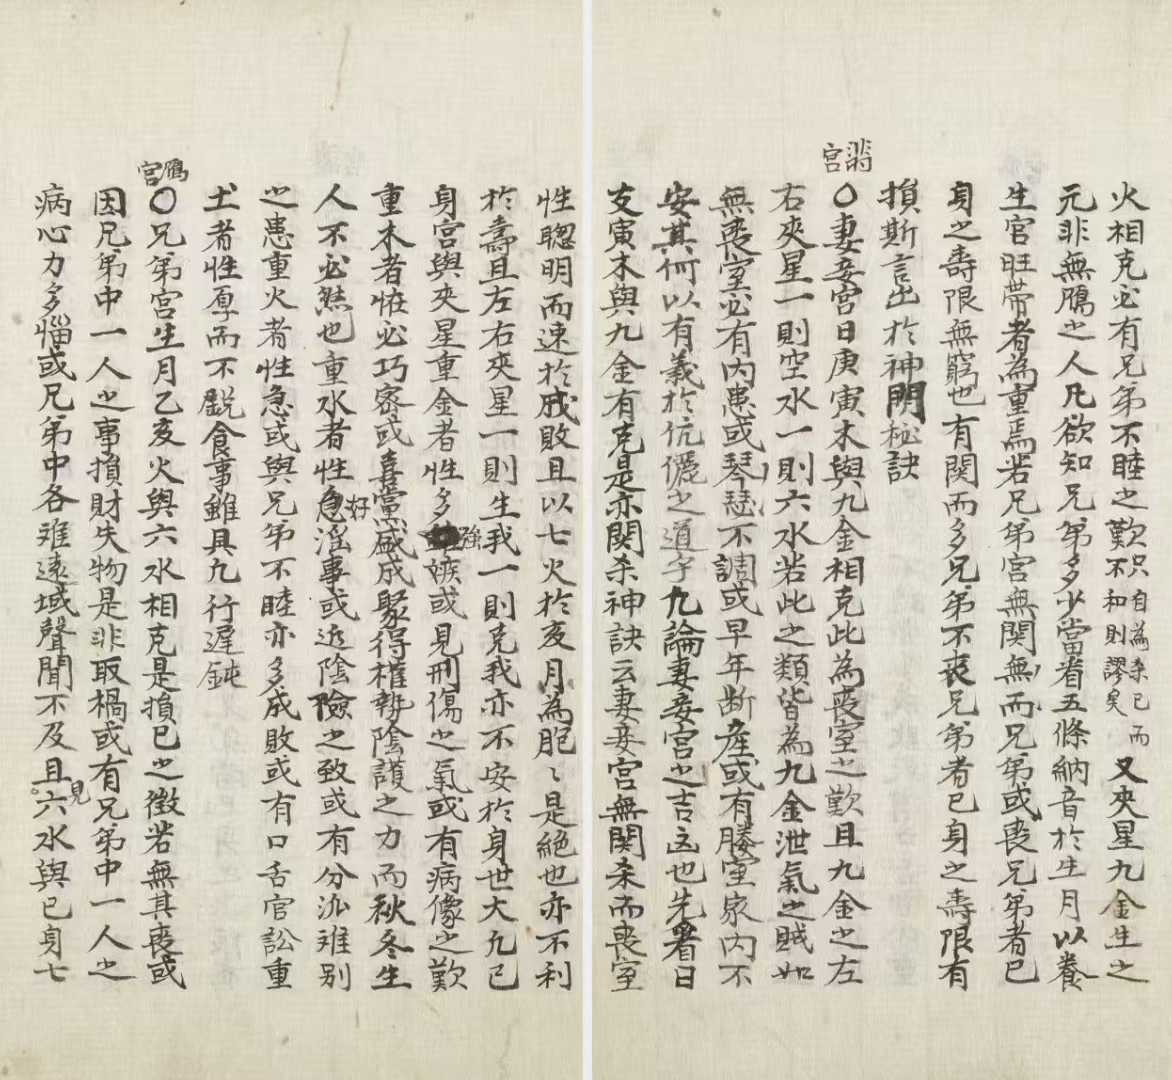 翡宮
火相克必有兄弟不睦之歎只自為杀已而和則謬矣又夾星九金生之
元非無鴈之人凡欲知兄弟多少當看五條納音於生月以養
生官旺帶者為重焉若兄弟宮無関無而兄弟或喪兄弟者已
身之壽限無窮也有関而多兄弟不喪兄弟者已身之壽限有
損斯言出於神門秘訣
〇妻妾宮日庚寅木與九金相克此為喪室之歎且九金之左
右夾星一則空水一則六水若此之類皆為九金泄氣之賊如
無喪室必有内患或琴瑟不調或早年断産或有媵室家内不
安其何以有義於伉儷之道乎九論妻妾宮之吉凶也先看日
支寅木與九金有克是亦関杀神訣云妻妾宮無関杀而喪室
性聰明而速於成敗且以七火於亥月為胞〻是絕也亦不利
於壽且左右夾星一則生我一則克我亦不安於身世大凡已
身宮與夾星重金者性多強嫉或見刑傷之氣或有病像之歎
重木者性必巧密或喜黨盛成聚得權勢陰護之力而秋冬生
人不必然也重水者性急好淫事或近陰險之致或有分派难別
之患重火者性急或與兄弟不睦亦多成敗或有口舌官訟重
土者性厚而不銳食事雖具凡行遲鈍
鴈宮
〇兄弟宮生月乙亥火與六水相克是損已之徵若無其喪或
因兄弟中一人之事損財失物是非取禍或有兄弟中一人之
病心力多惱或兄弟中各难遠域聲聞不及且見六水與已身七